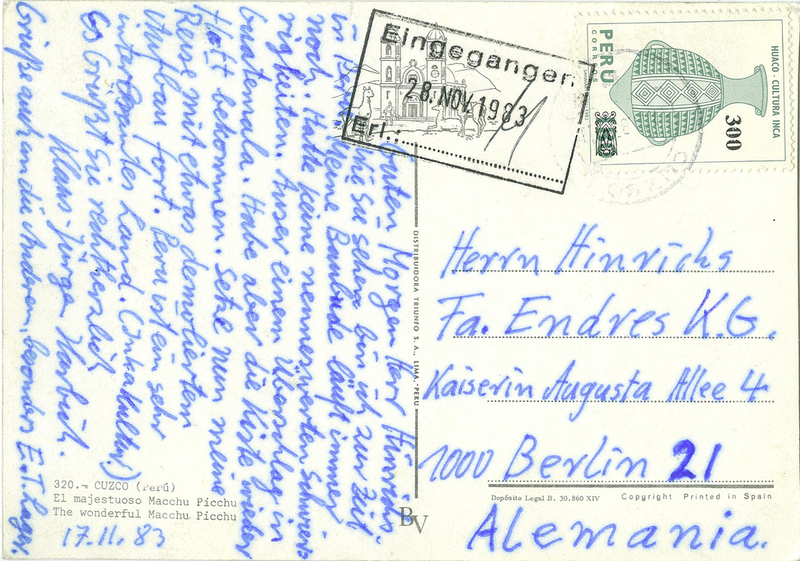 Guten Morgen Herr Hinrichs.
Wie Sie sehen bin ich zur Zeit
in Peru. Meine Baulunde läuft immer
noch. Hatte keine nennenswerten Schwie-
rigkeiten. Ausser einem Überschlag in
Guatemala. Habe aber die Kiste wieder
Flott bekommen. Setze nun meine
Reise mit etwas demoliertem
Unfall fort. Peru ist ein sehr
interesantes Land. (Inkakultur)
Es Grüßt Sie recht herzlich
Klaus Jürgen
Grüße auch an die Anderen, besonders E.
320.- CUZCO (Perú)
El majestuoso Macchu Picchu
The wonderful Macchu Picchu
17.11.83
DISTRIBUIDORA TRIUNFO S.A., LIMA, PERU
BV
Eingegangen
28. NOV. 1983
Erl.:
PERU
CORREOS
HUACO - CULTURA INCA
300
Herrn Hinrichs
Fa. Endres K.G.
Kaiserin Augusta Allee 4
1000 Berlin 21
Alemania.
Depósito Legal B. 30.860 XIV
Copyright Printed in Spain